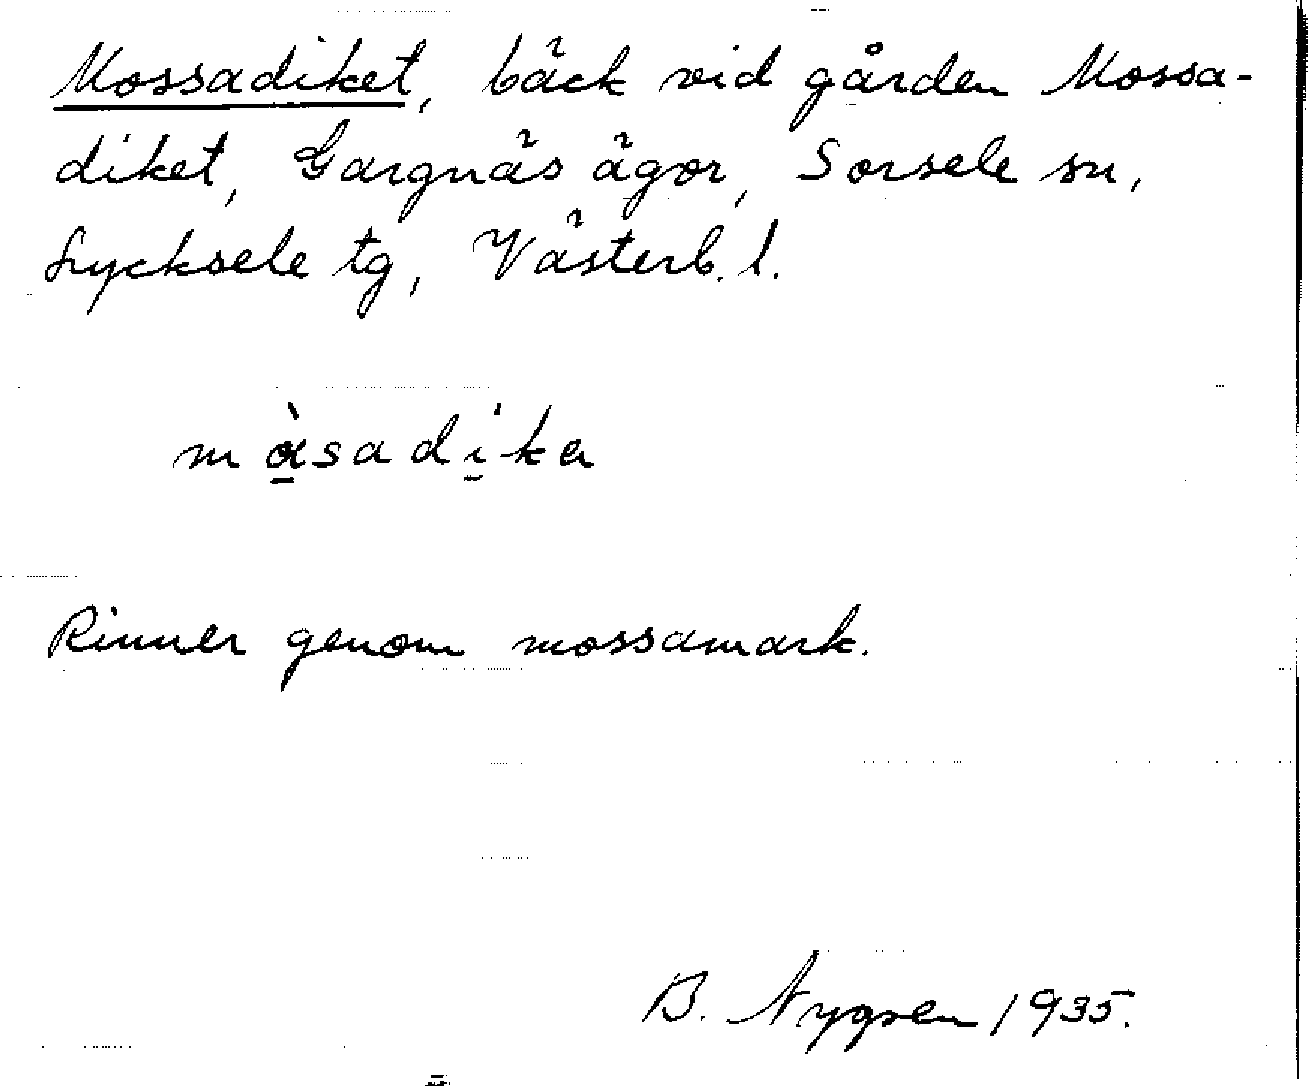 Mossadiket, bäck vid gården Mossa-
diket, Gargnäs ägor, Sorsele sn,
Lycksele tg, Västerb. l.
mɑ̱̀sadi̱ka
Rinner genom mossamark.
B. Nygren 1935.